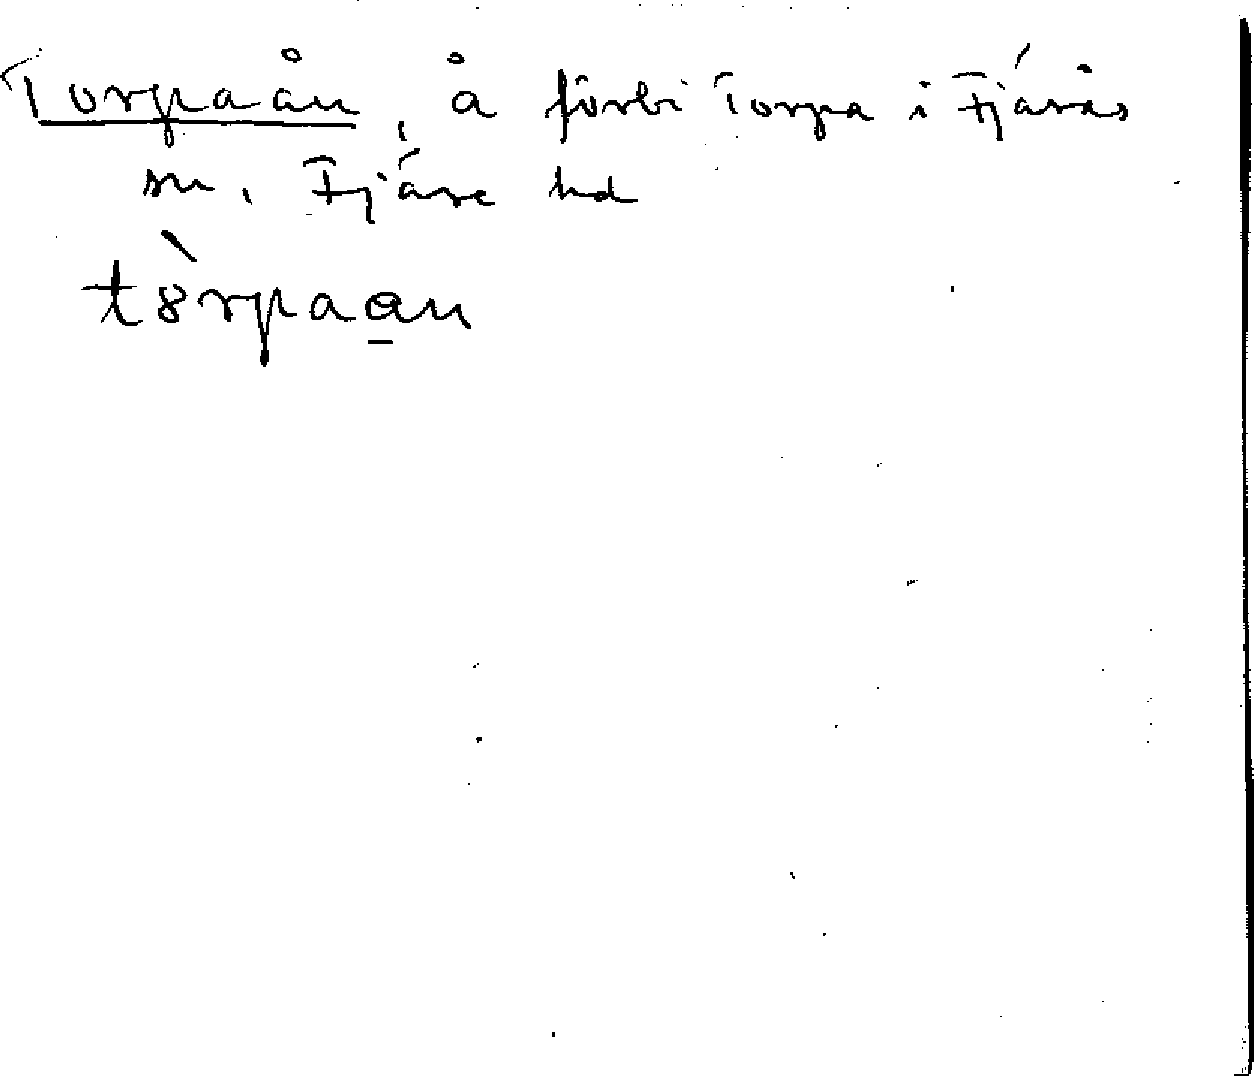 Torpaån, å förbi Torpa i Fjärås
sn, Fjäre hd
tȣ̀rpaa̲n